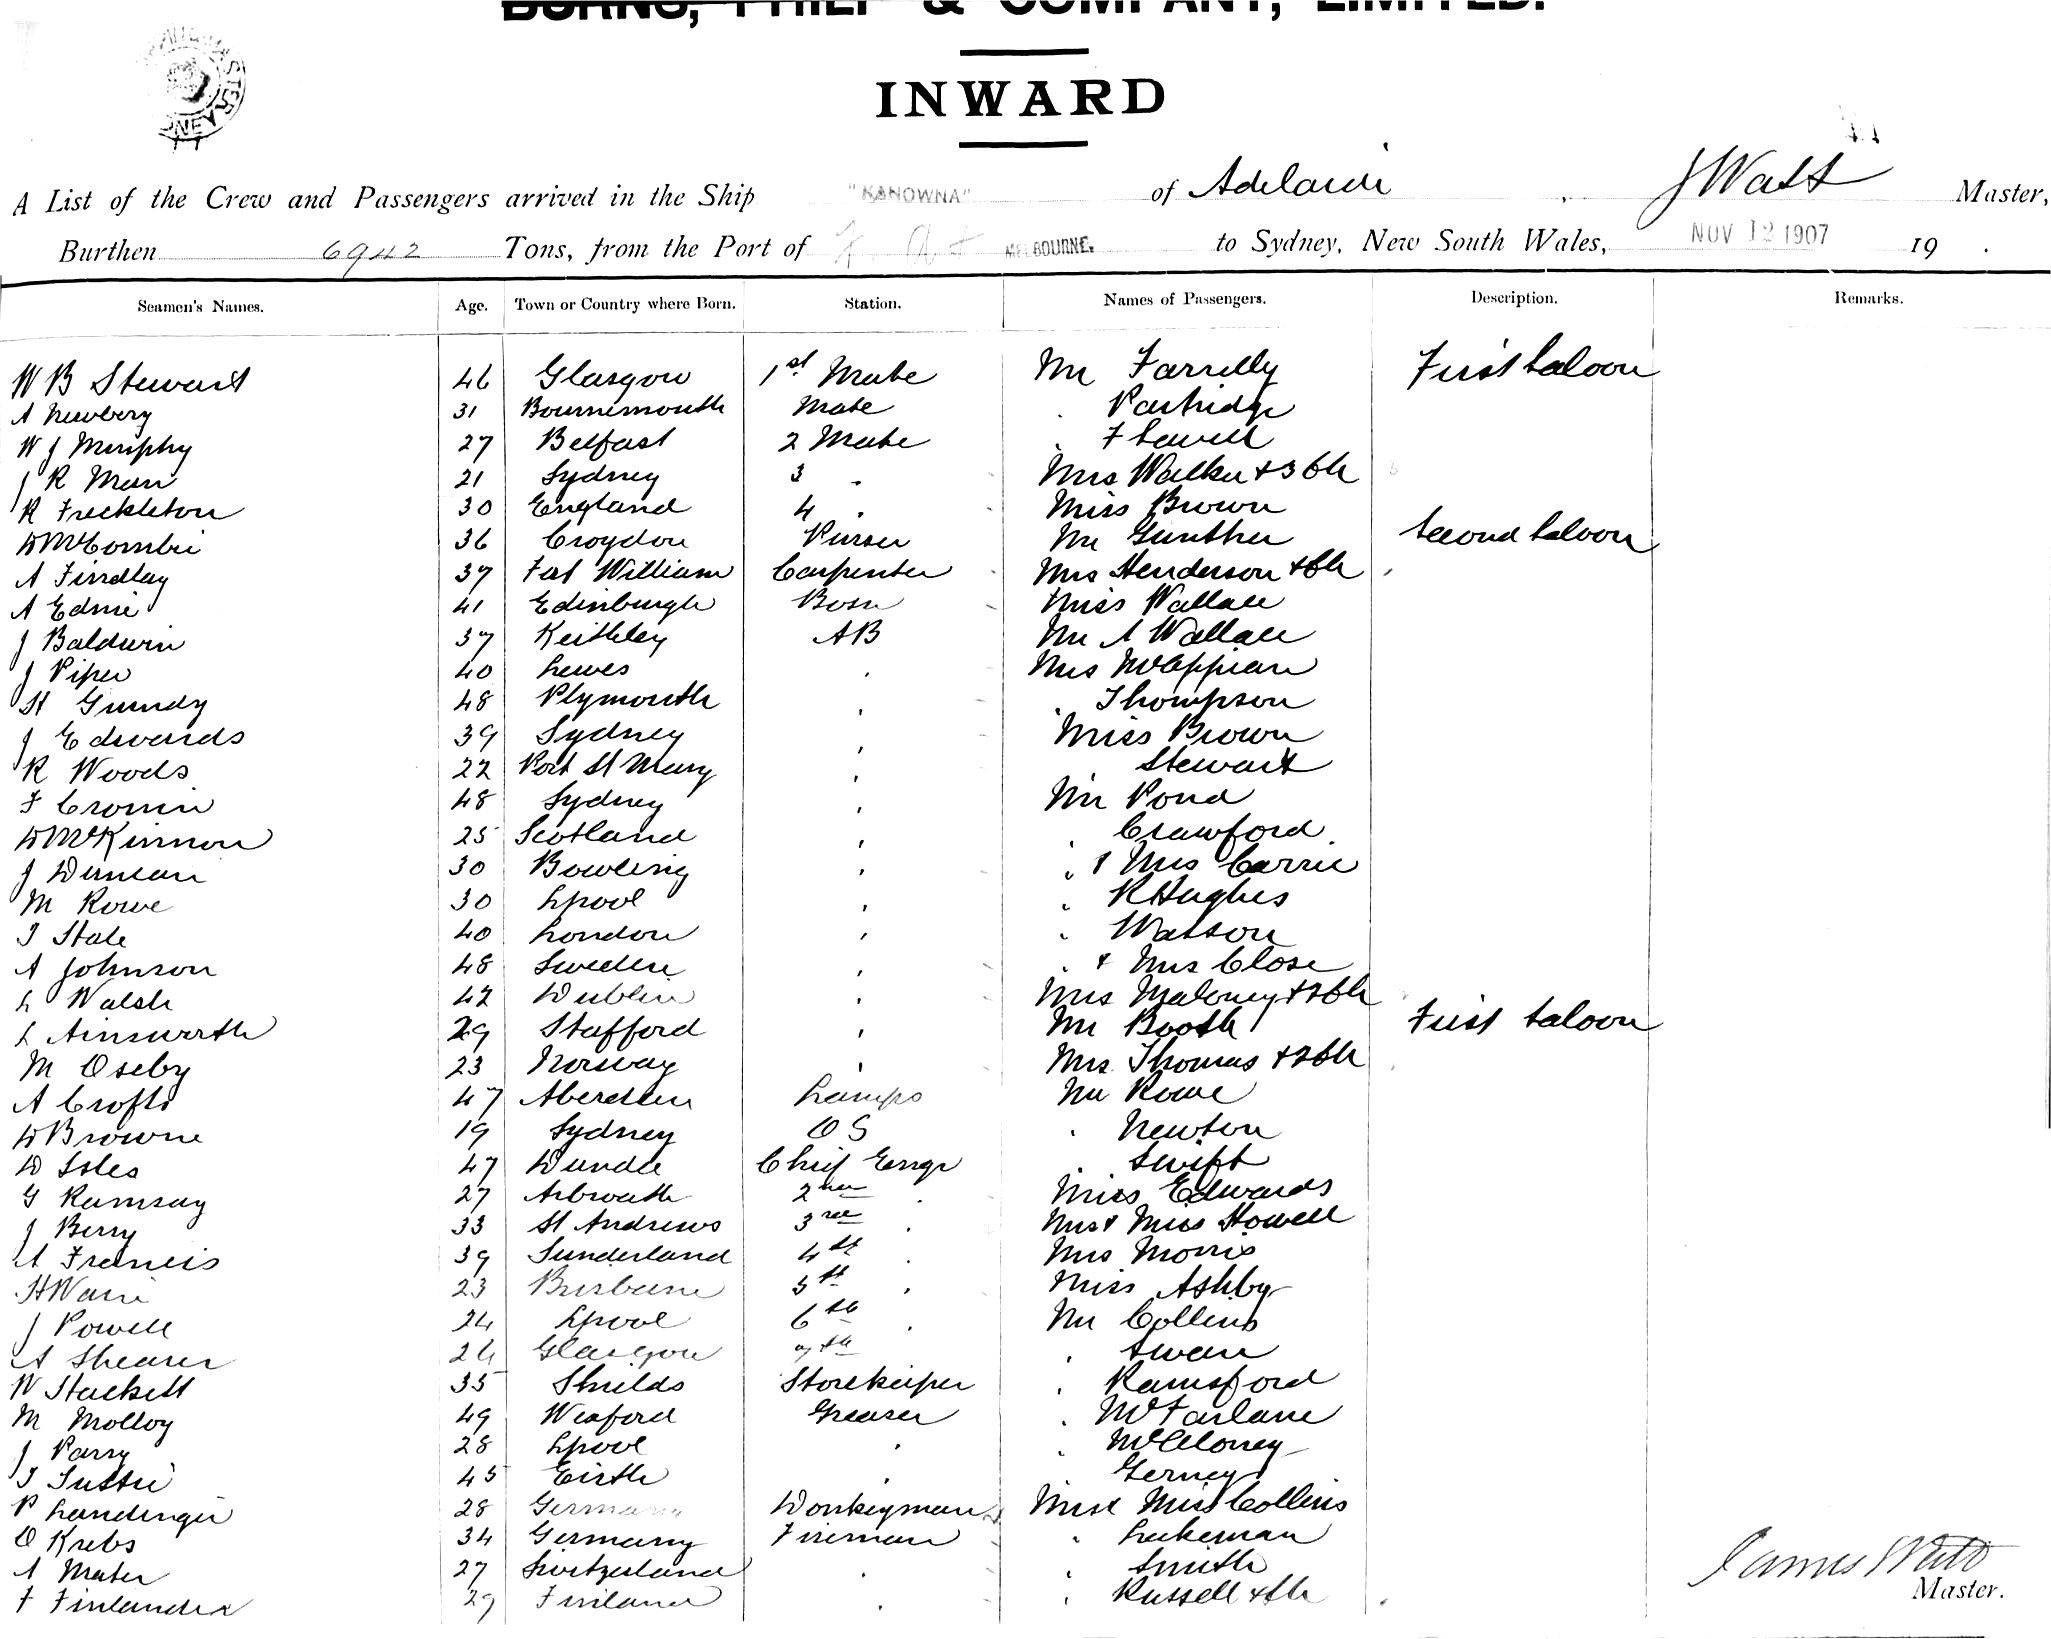 BURNS, PHILP & COMPANY, LIMITED.
INWARD
A List of the Crew and Passengers arrived in the Ship "KANOWNA" of Adelaide, J Watt Master,
Burthen 6942 Tons, from the Port of MELBOURNE. to Sydney, New South Wales, NOV 12 1907 19 .
Seamen's Names. Age. Town or Country where Born. Station. Names of Passengers. Description. Remarks.
W B Stewart 46 Glasgow 1st Mate Mr Farrelly First Saloon
A Newbery 31 Bournemouth Mate " Partridge
W J Murphy 27 Belfast 2 Mate " F Sewell
J R Man 21 Sydney 3 " Mrs Walker & 3 Ch
R Freckleton 30 England 4 " Miss Brown
D McCombie 36 Croydon Purser Mr Gunther Second Saloon
A Findlay 37 Fort William Carpenter Mrs Henderson & Ch
A Edmie 41 Edinburgh Bosn Miss Wallace
J Baldwin 37 Keithley AB Mr A Wallace
J Piper 40 Lewes " Mrs
H Grundy 48 Plymouth " " Thompson
J Edwards 39 Sydney " Miss Brown
R Woods 22 Port St Mary " " Stewart
F Cronin 48 Sydney " Mr Pond
D McKinnon 25 Scotland " " Crawford
J Duncan 30 Bowling " " & Mrs Carrie
M Rowe 30 Lpool " " R Hughes
T State 40 London " " Watson
A Johnson 48 Sweden " " & Mrs Close
L Walsh 42 Dublin " Mrs Maloney & 2 Ch
L Ainsworth 29 Stafford " Mr Booth First Saloon
M Oseby 23 Norway " Mrs Thomas & 2 Ch
A Crofts 47 Aberdeen Lamps Mr Rowe
D Browne 19 Sydney OS " Newton
D Isles 47 Dundee Chief Engr " Swift
G Ramsay 27 Arbroath 2nd " Miss Edwards
J Berry 33 St Andrews 3rd " Mrs & Miss Howell
A Francis 39 Sunderland 4th " Mrs Morris
H Warie 23 Brisbane 5th " Miss Ashby
J Powell 24 Lpool 6th " Mr Collins
A Shearer 24 Glasgow 7th " Swan
W Stackett 35 Shields Storekeeper " Rainsford
M Molloy 49 Wexford Greaser " McFarlane
J Parry 28 Lpool " "
T Suttie 45 Eirth " Gerney
P Landinger 28 Germany Donkeyman Mrs & Miss Collins
O Krebs 34 Germany Fireman " Lukeman
A Mater 27 Switzerland " " Smith
F Finlander 29 Finland " " Russell & Ch
James Watt
Master.